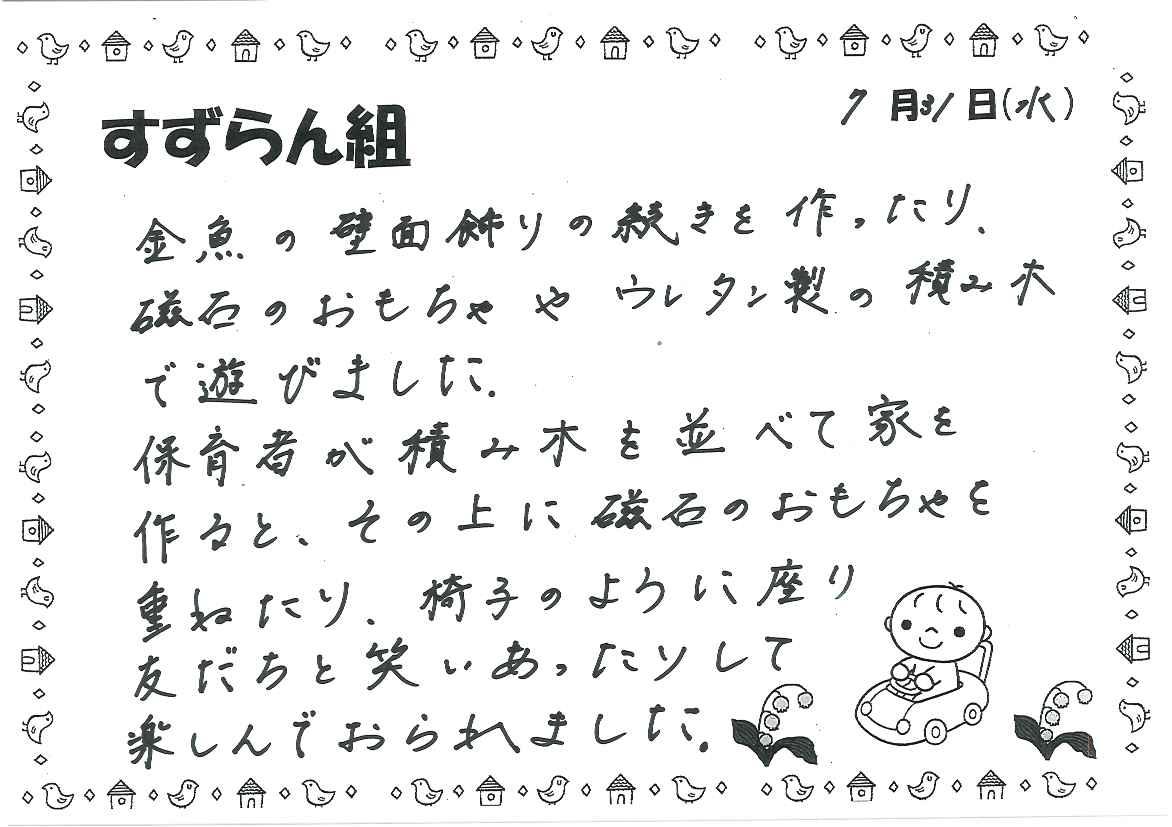 7月31日(水)
すずらん組
金魚の壁面飾りの続きを作ったり、
磁石のおもちゃやウレタン製の積み木
で遊びました。
保育者が積み木を並べて家を
作ると、その上に磁石のおもちゃを
重ねたり、椅子のように座り
友だちと笑いあったりして
楽しんでおられました。